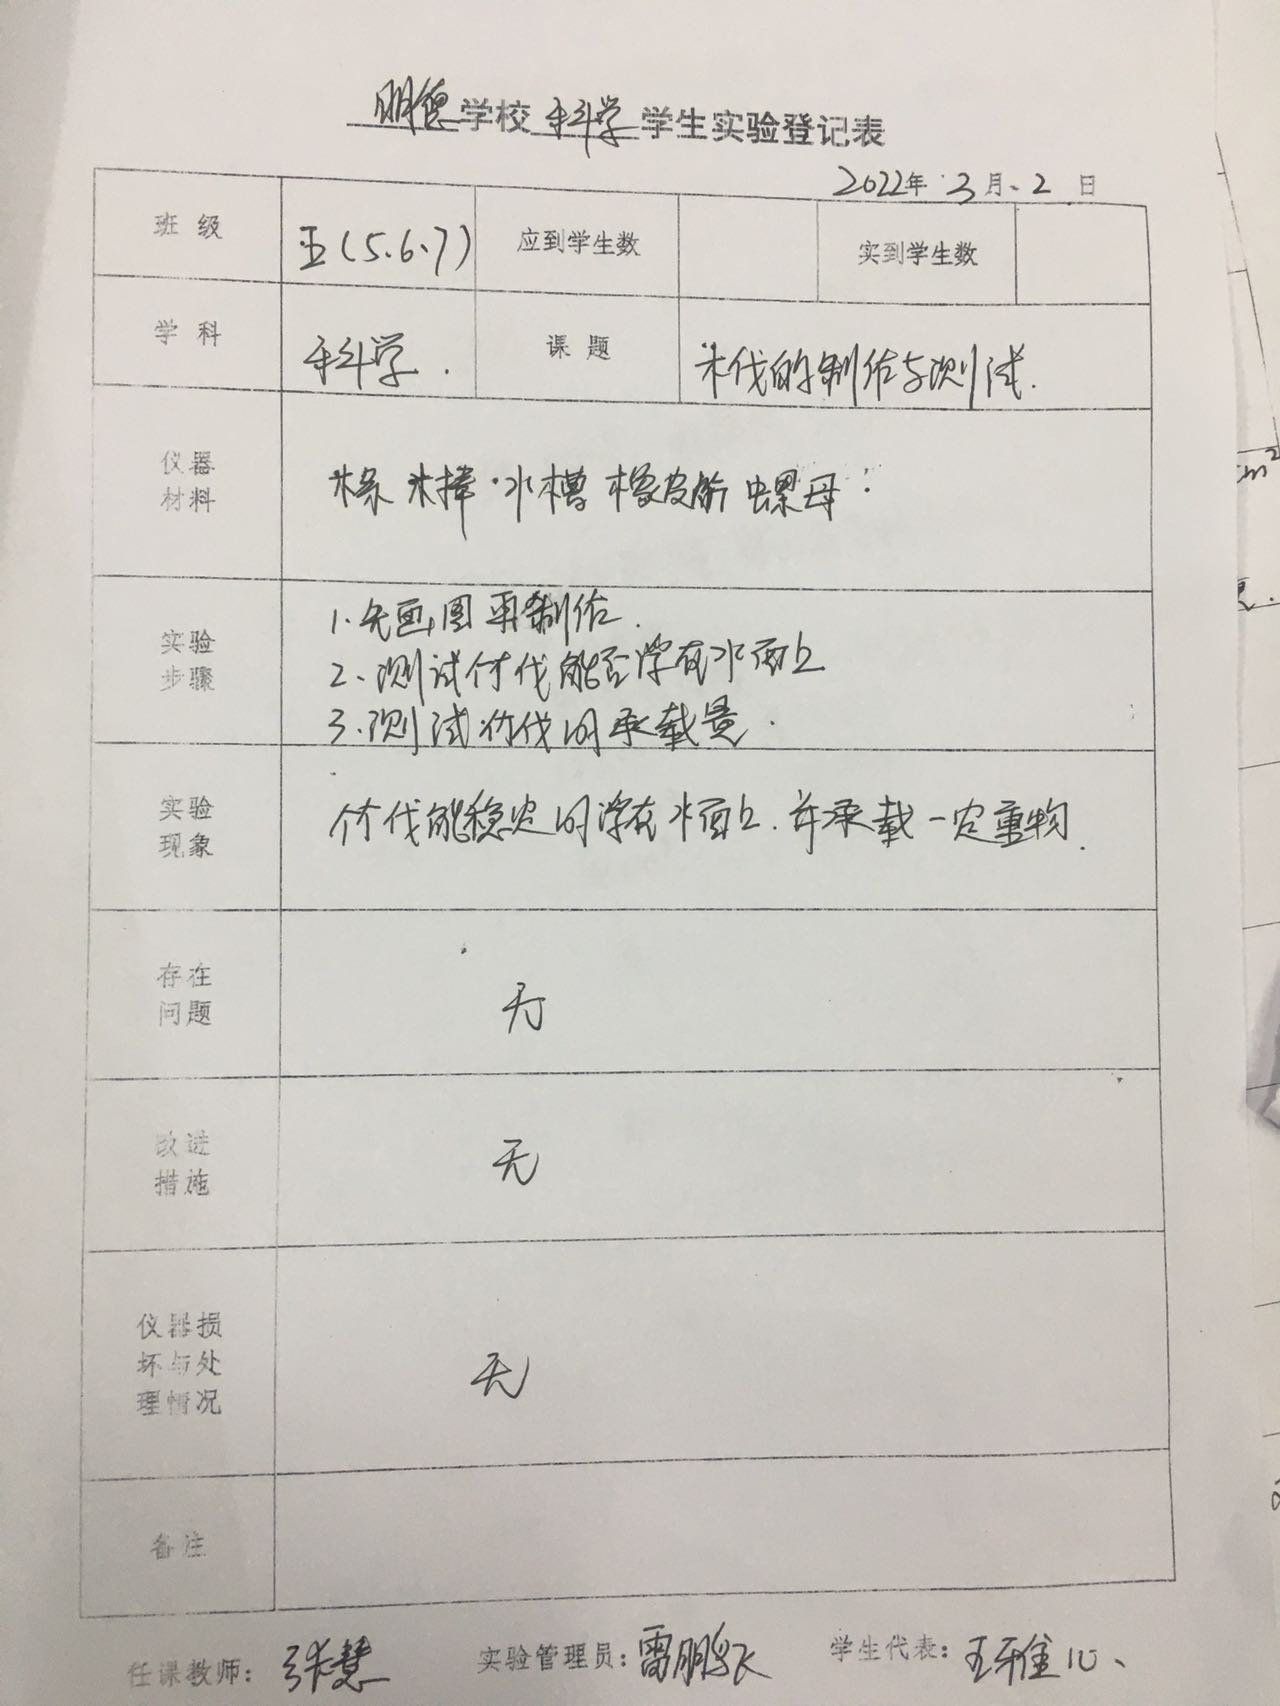 明德学校科学学生实验登记表
2022年3月2日
班级 五(5.6.7) 应到学生数 实到学生数
学科 科学. 课题 木伐的制作与测试.
仪器
材料
木条 木棒 水槽 橡皮筋 螺母
实验
步骤
1.先画图再制作.
2、测试竹伐能否浮在水面上
3.测试竹伐的承载量.
实验
现象
竹伐能稳定的浮在水面上.并承载一定重物.
存在
问题
无
改进
措施
无
仪器损
坏与处
理情况
无
备注
任课教师: 张慧 实验管理员: 雷鹏飞 学生代表: 王雅心、
cm²